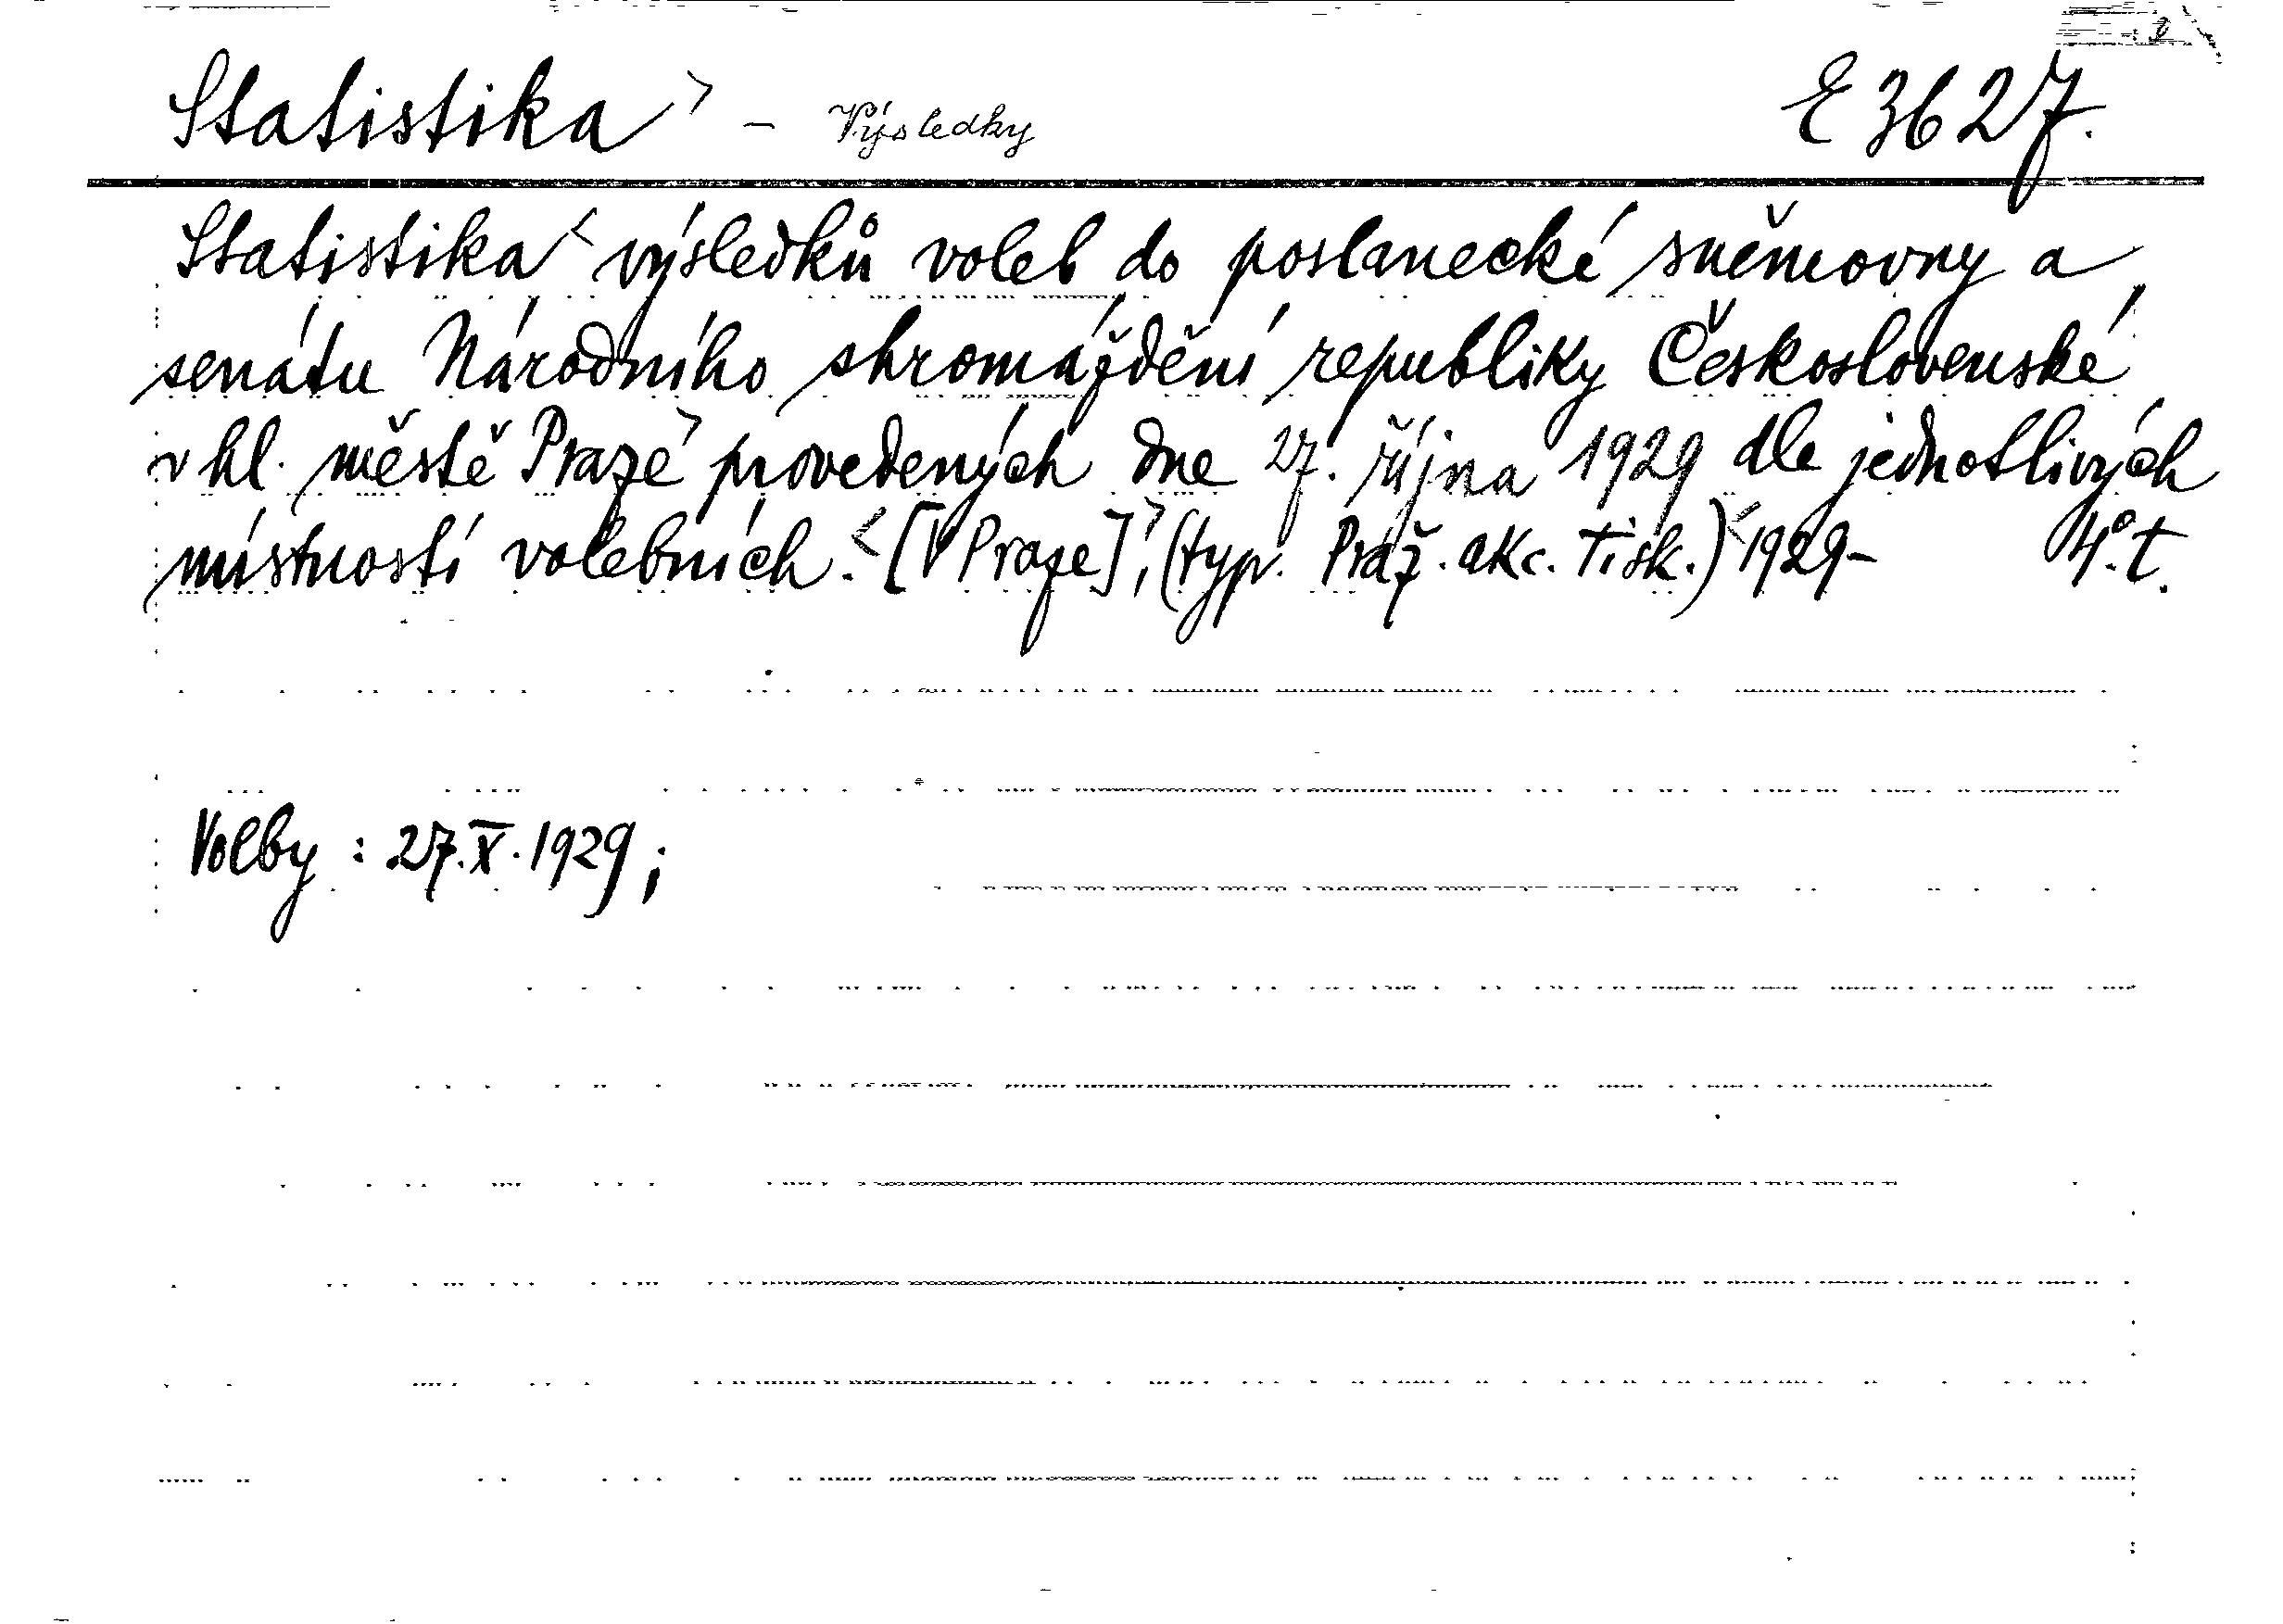 Statistika > - Výsledky E 3627.
Statistika < výsledků voleb do poslanecké sněmovny a
senátu Národního shromáždění republiky Československé
v hl. městě Praze > provedených dne 27. října 1929 dle jednotlivých
místností volebních. < [V Praze], > (typ. Praž. akc. tisk.) < 1929- 4°. t.
Volby : 27. X. 1929 ;